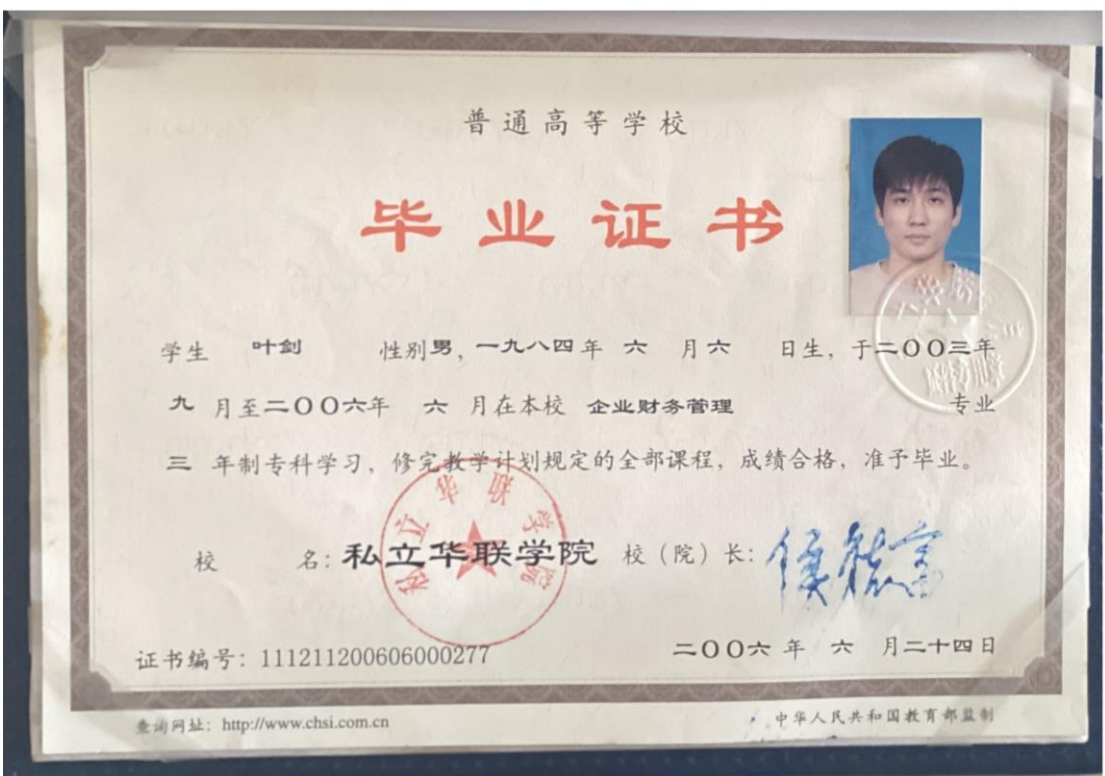 普通高等学校
毕业证书
学生 叶剑 性别男，一九八四年 六 月六 日生，于二〇〇三年
九 月至二〇〇六年 六 月在本校 企业财务管理 专业
三 年制专科学习，修完教学计划规定的全部课程，成绩合格，准予毕业。
私立华联学院
校 名：私立华联学院 校（院）长：
证书编号：111211200606000277 二〇〇六 年 六 月二十四日
查询网址：http://www.chsi.com.cn 中华人民共和国教育部监制